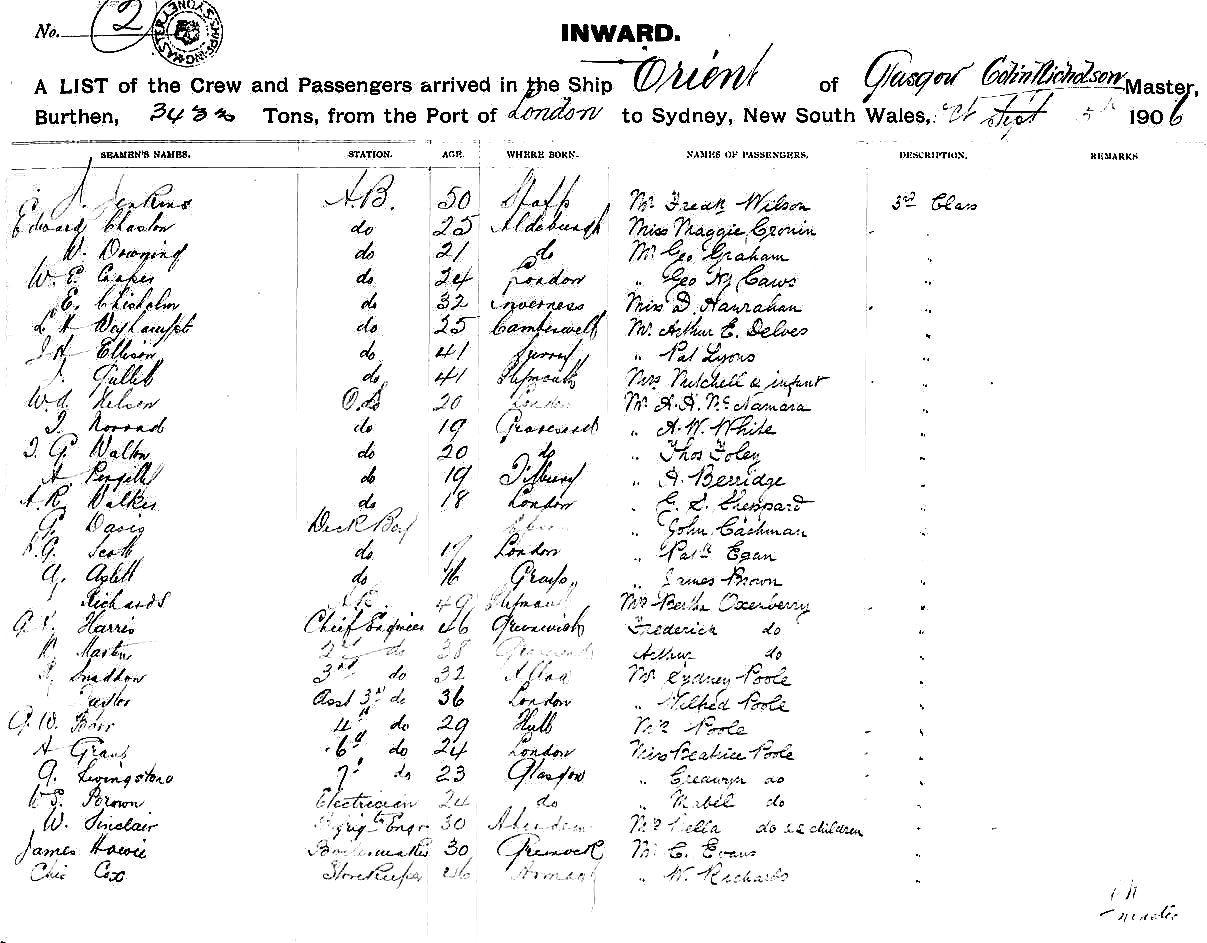 No. 2
INWARD.
A LIST of the Crew and Passengers arrived in the Ship Orient of Glasgow Colin Nicholson Master,
Burthen, 3433 Tons, from the Port of London to Sydney, New South Wales, Sept 5th 1906
SEAMEN'S NAMES. STATION. AGE. WHERE BORN. NAMES OF PASSENGERS. DESCRIPTION. REMARKS
Jenkins A.B. 50 Staffs Mr Fredk Wilson 3rd Class
Edward Chaston do 25 Aldeburgh Miss Maggie Cronin "
W. Downing do 21 do Mr Geo Graham "
W. E. do 24 London " Geo Hy Caws "
E. Chisholm do 32 Inverness Miss D. Hanrahan "
do 25 Camberwell Mr Arthur E. Delves "
J H Ellison do 41 Surrey " Pat Lyons "
do 41 Mrs Mitchell & infant "
Nelson O.S 20 London Mr A. A. McNamara "
do 19 Gravesend " A. W. White "
J. G. Walton do 20 do " Thos Foley "
A do 19 Tilbury " A. Berridge "
A. R. Walker do 18 London " G. S. Sheppard "
G. Davis Deck Boy " John Cachman "
Scott do 17 London " Patk Egan "
do 16 Grays " James Brown "
Richards 49 Mrs Bertha Oxenberry "
Harris Chief Engineer 46 Greenwich Frederick do "
Martin 2nd do 38 Gravesend Arthur do "
Snaddon 3rd do 32 Alloa Mr Sydney Poole "
Taylor Asst 3rd do 36 London " Wilfred Poole "
G. W. Barr 4th do 29 Hull Mrs Poole "
A Grant 6th do 24 London Miss Beatrice Poole "
G. Livingstone 7th do 23 Glasgow " do "
Brown Electrician 24 do " Mabel do "
W. Sinclair Refrigtn Engr 30 Aberdeen Mrs Bella do & 2 children "
James Howie Boilermaker 30 Greenock Mr C. Evans "
Chas Cox Storekeeper 46 Armagh " W. Richards "